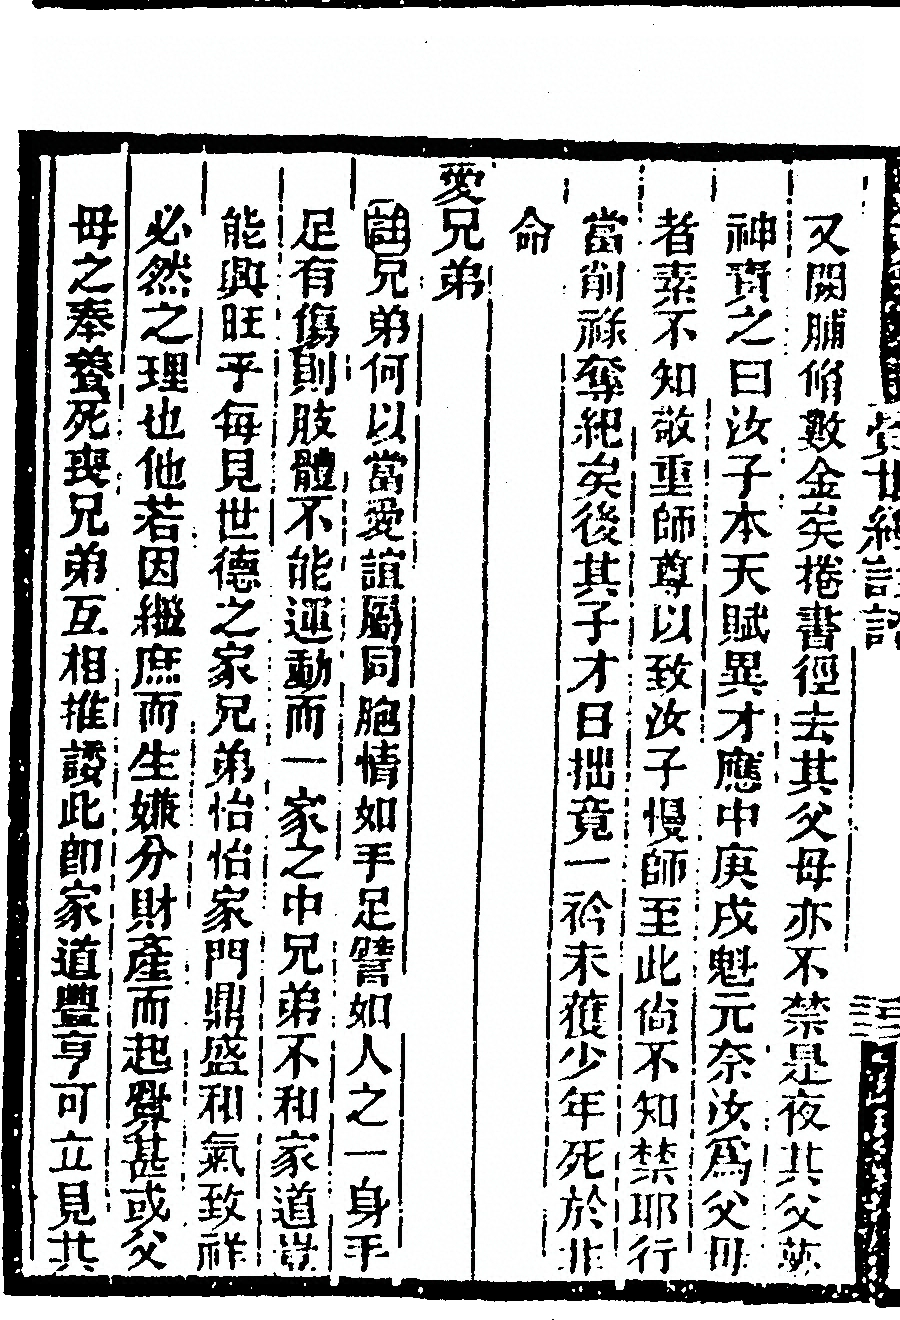 覺世經註證
又闕脯脩數金矣捲書徑去其父母亦不禁是夜其父夢
神責之曰汝子本天賦異才應中庚戌魁元奈汝爲父母
者素不知敬重師尊以致汝子慢師至此尙不知禁耶行
當削祿奪紀矣後其子才日拙竟一衿未獲少年死於非
命
愛兄弟
註兄弟何以當愛誼屬同胞情如手足譬如人之一身手
足有傷則肢體不能運動而一家之中兄弟不和家道豈
能興旺乎每見世德之家兄弟怡怡家門鼎盛和氣致祥
必然之理也他若因繼庶而生嫌分財產而起釁甚或父
母之奉養死喪兄弟互相推諉此卽家道豐亨可立見其